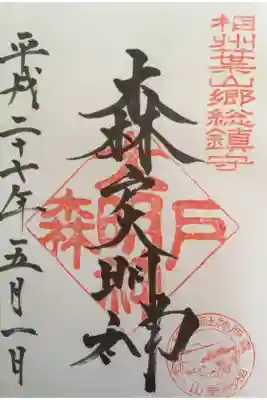 相州葉山郷総鎮守
森戸大明神
森戸
大明神
平成二十七年五月一日